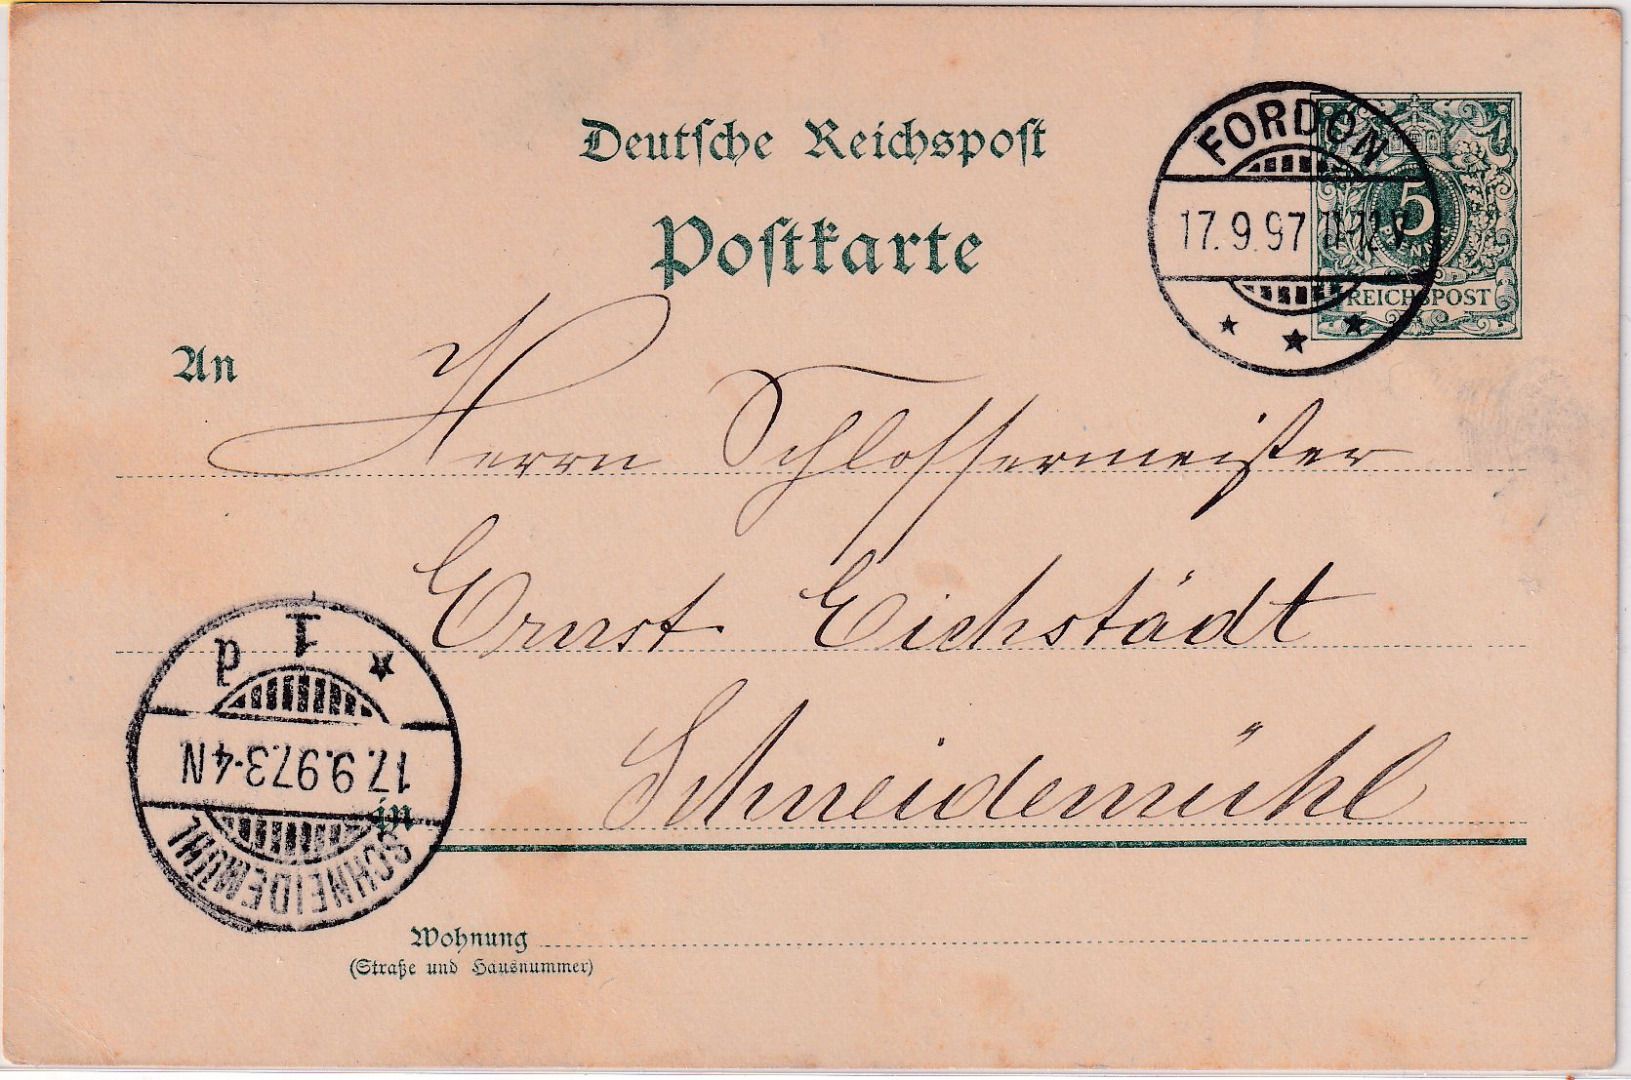 Deutsche Reichspost
Postkarte
FORDON
17.9.97 11-12 V
5
REICHSPOST
An
Herrn Schlossermeister
Ernst Eichstädt
in Schneidemühl
SCHNEIDEMÜHL
17.9.97.3-4N
1 d
Wohnung
(Straße und Hausnummer)